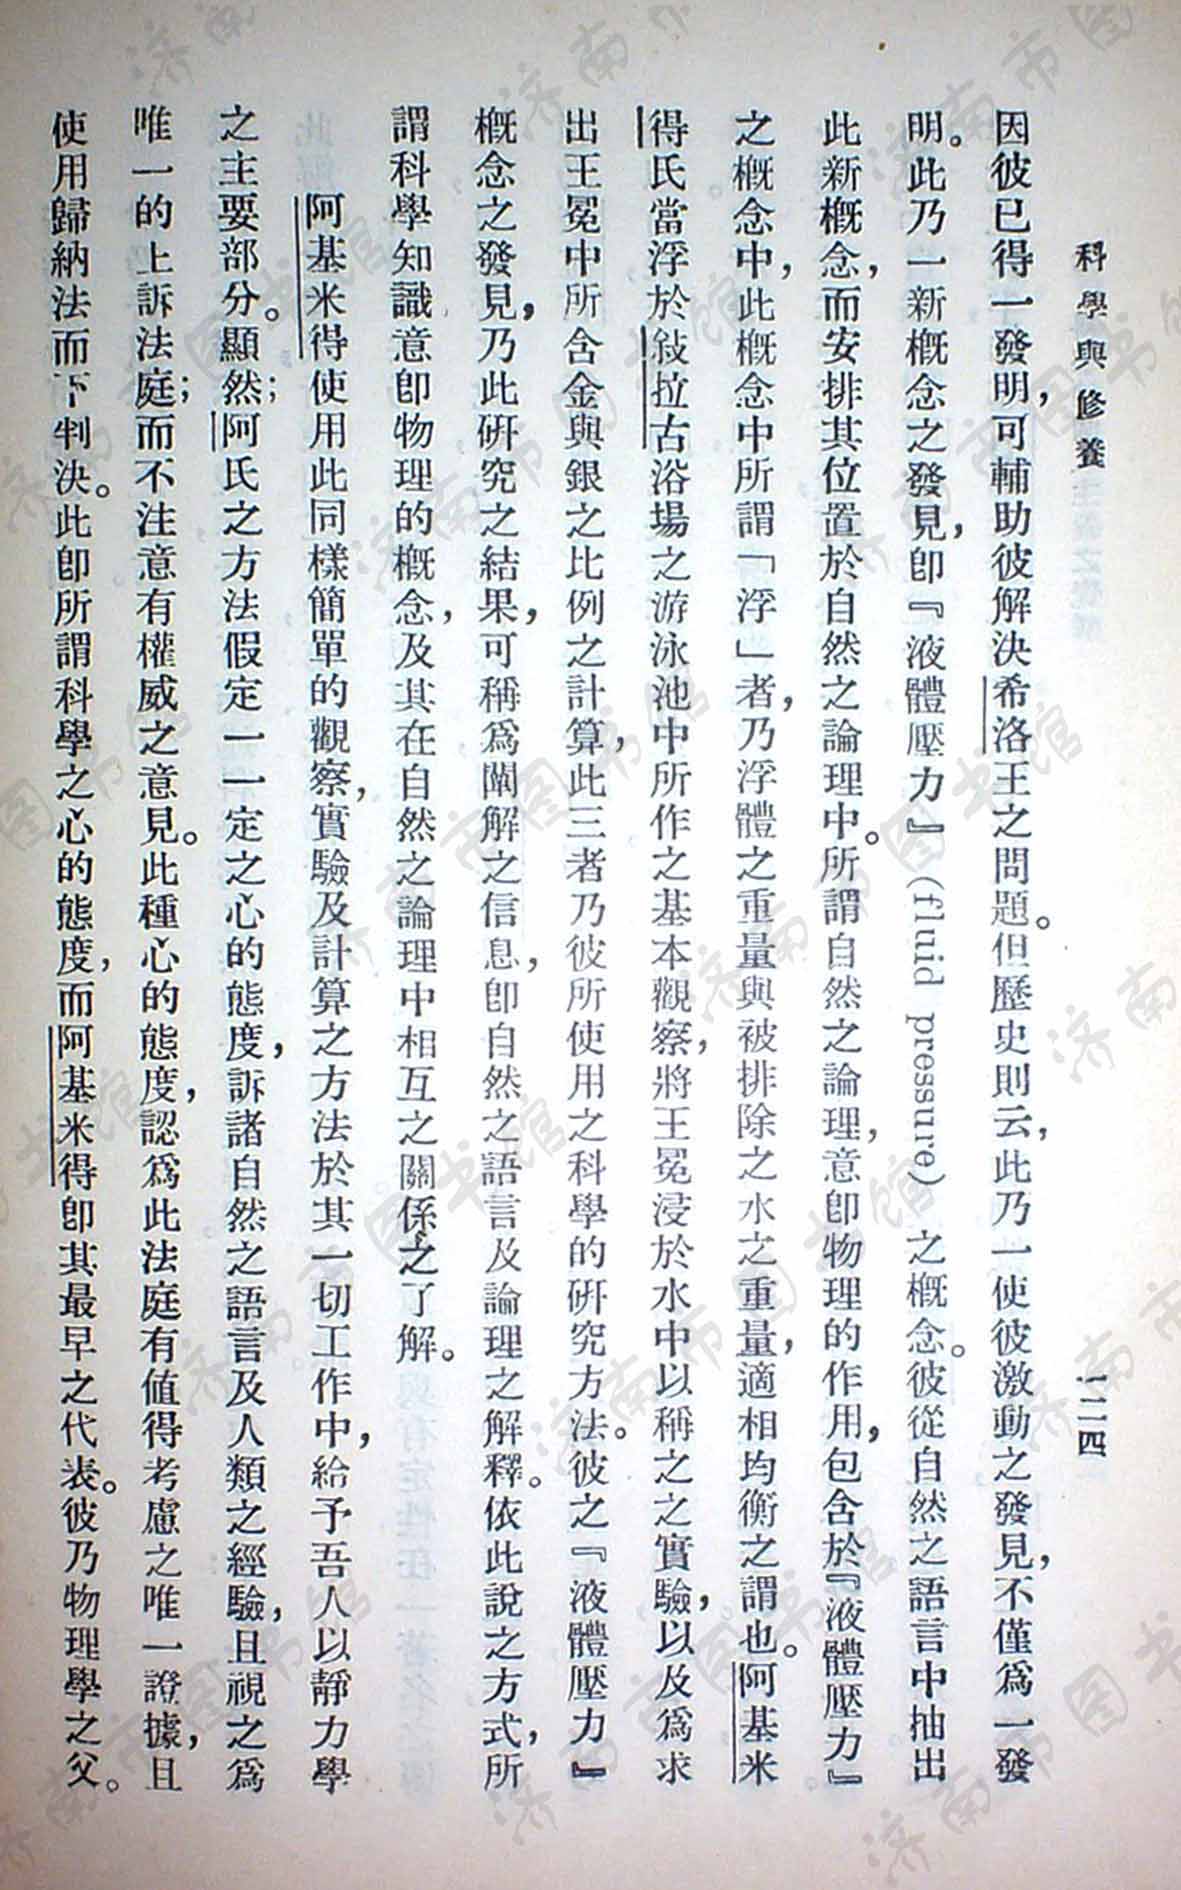 科學與修養
一二四
因彼已得一發明，可輔助彼解決希洛王之問題。但歷史則云，此乃一使彼激動之發見，不僅爲一發
明。此乃一新概念之發見，卽『液體壓力』(fluid pressure)之概念。彼從自然之語言中抽出
此新概念，而安排其位置於自然之論理中。所謂自然之論理，意卽物理的作用，包含於『液體壓力』
之概念中，此概念中所謂「浮」者，乃浮體之重量與被排除之水之重量，適相均衡之謂也。阿基米
得氏當浮於敍拉古浴場之游泳池中所作之基本觀察，將王冕浸於水中以稱之之實驗，以及爲求
出王冕中所含金與銀之比例之計算，此三者乃彼所使用之科學的研究方法。彼之『液體壓力』
概念之發見，乃此研究之結果，可稱爲闡解之信息，卽自然之語言及論理之解釋。依此說之方式，所
謂科學知識意卽物理的概念，及其在自然之論理中相互之關係之了解。
阿基米得使用此同樣簡單的觀察，實驗及計算之方法於其一切工作中，給予吾人以靜力學
之主要部分。顯然；阿氏之方法假定一一定之心的態度，訴諸自然之語言及人類之經驗，且視之爲
唯一的上訴法庭；而不注意有權威之意見。此種心的態度，認爲此法庭有值得考慮之唯一證據，且
使用歸納法而下判決。此卽所謂科學之心的態度，而阿基米得卽其最早之代表。彼乃物理學之父。
济南市图书馆